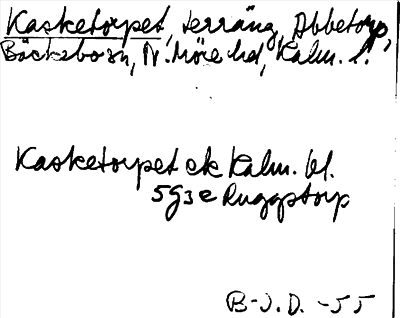 Kasketorpet, terräng, Abbetorp,
Bäckebo sn, N. Möre hd, Kalm. l.
Kasketorpet ek Kalm. bl.
5G3e Ruggstorp
B-J.D. -55